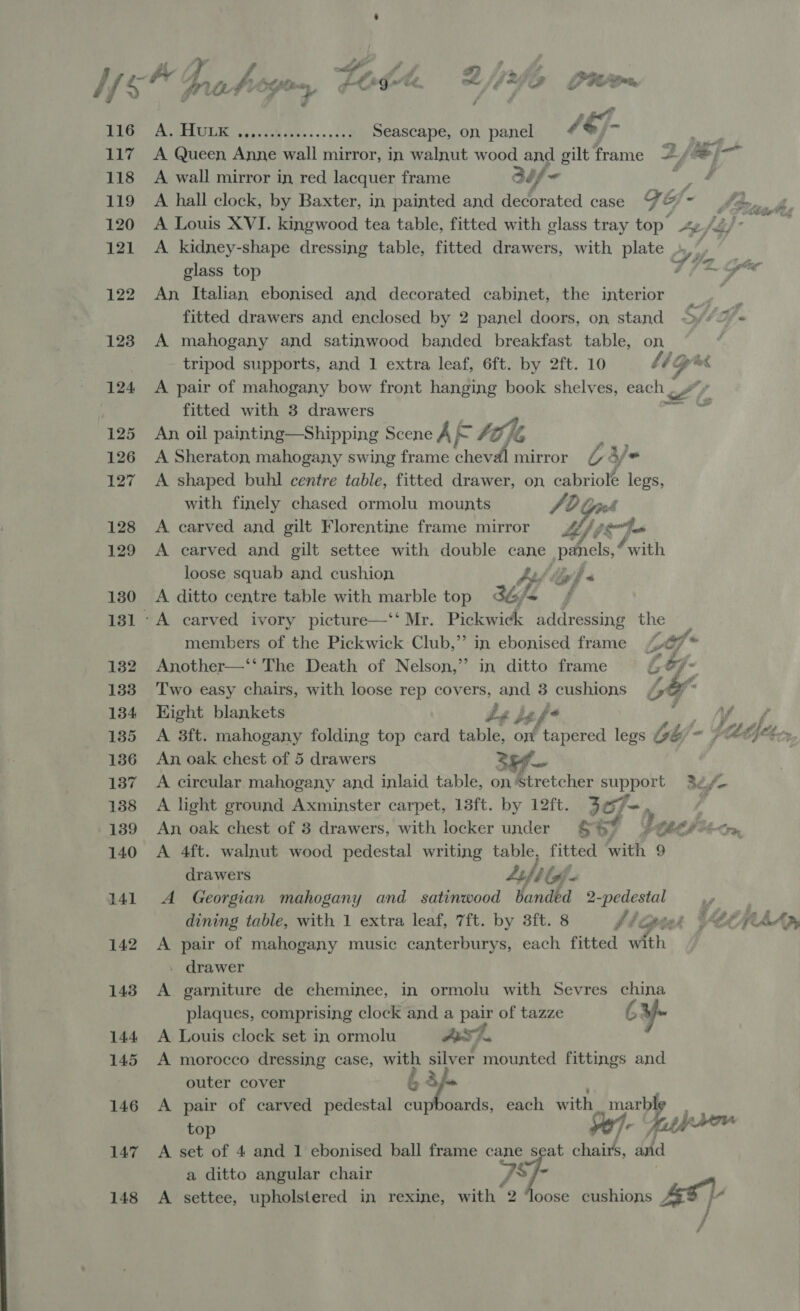 115 Mahogany
116 A. HULK ........................ Seascape, on panel
117 A Queen Anne wall mirror, in walnut wood and gilt frame
118 A wall mirror in red lacquer frame
119 A hall clock, by Baxter, in painted and decorated case
120 A Louis XVI. kingwood tea table, fitted with glass tray top
121 A kidney-shape dressing table, fitted drawers, with plate
glass top
122 An Italian ebonised and decorated cabinet, the interior
fitted drawers and enclosed by 2 panel doors, on stand
123 A mahogany and satinwood banded breakfast table, on
tripod supports, and 1 extra leaf, 6ft. by 2ft. 10
124 A pair of mahogany bow front hanging book shelves, each
fitted with 3 drawers
125 An oil painting—Shipping Scene
126 A Sheraton mahogany swing frame cheval mirror
127 A shaped buhl centre table, fitted drawer, on cabriole legs,
with finely chased ormolu mounts
128 A carved and gilt Florentine frame mirror
129 A carved and gilt settee with double cane panels, with
loose squab and cushion
130 A ditto centre table with marble top
131 A carved ivory picture—“Mr. Pickwick addressing the
members of the Pickwick Club,” in ebonised frame
132 Another—“The Death of Nelson,” in ditto frame
133 Two easy chairs, with loose rep covers, and 3 cushions
134 Eight blankets
135 A 3ft. mahogany folding top card table, on tapered legs
136 An oak chest of 5 drawers
137 A circular mahogany and inlaid table, on stretcher support
138 A light ground Axminster carpet, 13ft. by 12ft.
139 An oak chest of 3 drawers, with locker under
140 A 4ft. walnut wood pedestal writing table, fitted with 9
drawers
141 A Georgian mahogany and satinwood banded 2-pedestal
dining table, with 1 extra leaf, 7ft. by 3ft. 8
142 A pair of mahogany music canterburys, each fitted with
drawer
143 A garniture de cheminee, in ormolu with Sevres china
plaques, comprising clock and a pair of tazze
144 A Louis clock set in ormolu
145 A morocco dressing case, with silver mounted fittings and
outer cover
146 A pair of carved pedestal cupboards, each with marble
top
147 A set of 4 and 1 ebonised ball frame cane seat chairs, and
a ditto angular chair
148 A settee, upholstered in rexine, with 2 loose cushions